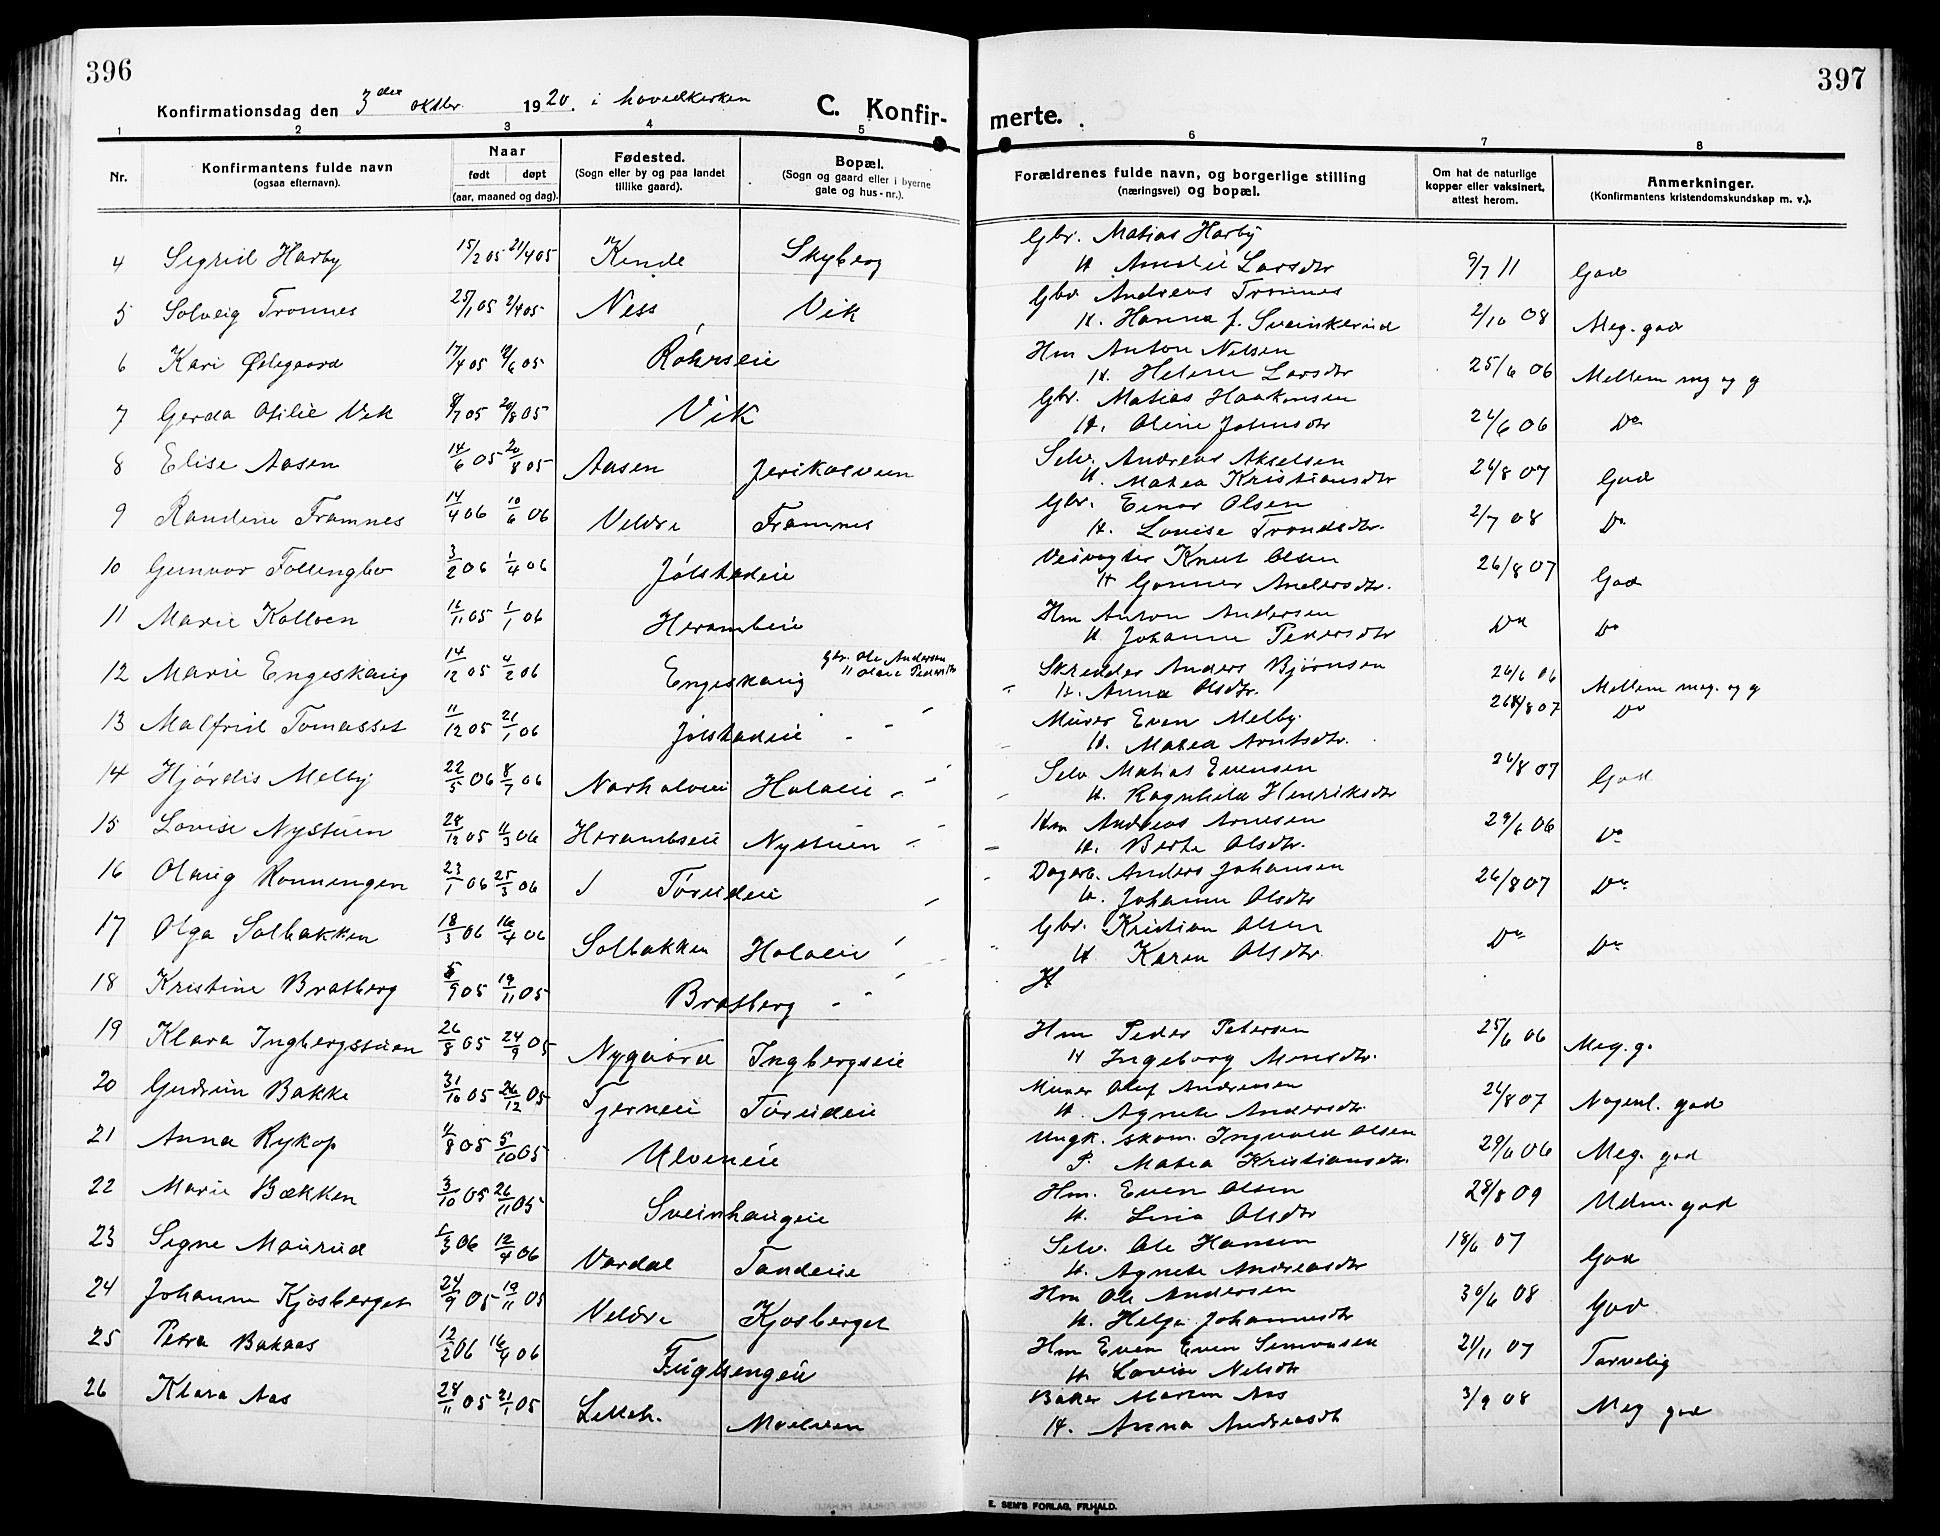 396
397
Konfirmationsdag den 3die oktbr. 1920. i hovedkirken
C. Konfir-
merte.
1 2 3 4 5 6 7 8
Nr.
Konfirmantens fulde navn
(ogsaa efternavn).
Naar
født døpt
(aar, maaned og dag).
Fødested.
(Sogn eller by og paa landet
tillike gaard).
Bopæl.
(Sogn og gaard eller i byerne
gate og hus-nr.).
Forældrenes fulde navn, og borgerlige stilling
(næringsvei) og bopæl.
Om hat de naturlige
kopper eller vaksinert,
attest herom.
Anmerkninger.
(Konfirmantens kristendomskundskap m. v.).
4 Sigrid Harby 15/2 05 21/4 05 Kinde Skyberg Gbr. Matias Harby 9/7 11 God
H. Amalie Larsdtr
5 Solveig Tronnes 25/1 05 2/4 05 Ness Vik Gbr Andreas Tronnes 2/10 08 Meg. god
H. Hanna f. Sveinkerud
6 Kari Ødegaard 17/4 05 /6 05 Røhrseie Hm Anton Nilsen 25/6 06 Mellem mg og g
H. Helene Larsdtr
7 Gerda Otilie Vik 8/7 05 20/8 05 Vik Gbr. Matias Haakonsen 26/6 06 Do
H. Oline Johnsdtr
8 Elise Aasen 14/6 05 20/8 05 Aasen Jerikosveen Selv. Andreas Akselsen 26/8 07 God
H. Matea Kristiansdtr
9 Randine Framnes 14/4 06 10/6 06 Veldre Framnes Gbr. Einar Olsen 2/7 08 Do
H. Lovise Trondsdtr.
10 Gunvor Follingbo 3/2 06 1/4 06 Jølstadeie Veivogter Knut Olsen 26/8 07 God
H Gunner Andersdtr.
11 Marie Kolloen 16/11 05 1/1 06 Herambeie Hm Anton Andersen Do Do
H Johanne Pedersdtr
12 Marie Engeskaug 14/12 05 4/2 06 Engeskaug Gbr. Ole Andersen Skredder Anders Bjørnsen 26/6 06 Mellem meg. og g
" Olave Pedersdtr H. Anna Olsdtr.
13 Malfrid Tomasset 11/12 05 21/1 06 Jølstadeie Murer Even Melby. 26/8 07 Do
H. Matea Arntsdtr.
14 Hjørdis Melby 22/5 06 8/7 06 Norholoeie Holoeie Selv Matias Evensen 26/8 07 God
H. Ragnhild Henriksdtr
15 Lovise Nystuen 28/12 05 11/3 06 Herambseie Nystuen Hm Andreas Arnesen 29/6 06 Do
H. Berte Olsdtr.
16 Olaug Rønningen 23/1 06 25/3 06 Tørudeie Dagarb. Anders Johansen 26/8 07 Do
H. Johanne Olsdtr
17 Olga Solbakken 18/3 06 16/4 06 Solbakken Holoeie Gbr. Kristian Olsen Do Do
H Karen Olsdtr.
18 Kristine Bratberg 5/9 05 19/11 05 Bratberg H
19 Klara Ingbergstuen 26/8 05 24/9 05 Nygaard Ingbergseie Hm Peder Petersen 25/6 06 Meg. g.
H Ingeborg Monsdtr.
20 Gudrun Bakke 31/10 05 26/12 05 Tjerneie Tørudeie Murer Oluf Andreasen 26/8 07 Nogenl. god
H. Agnete Andersdtr.
21 Anna Rykop 11/8 05 5/10 05 Ulveneie Ungk. skom. Ingvald Olsen 29/6 06 Meg. god
P. Matea Kristiansdtr.
22 Marie Bækken 3/10 05 26/11 05 Sveinhaugeie Hm. Even Olsen 28/8 09 Udm. god
H. Lina Olsdtr
23 Signe Maurud /3 06 12/4 06 Vardal Tandeeie Selv. Ole Hansen 18/6 07 God
H. Agnete Andreasdtr
24 Johanne Kjosberget 24/9 05 19/11 05 Veldre Kjosberget Hm Ole Andersen 30/6 08 God
H. Helga Johannesdtr
25 Petra Bakaas 12/2 06 16/4 06 Fuglsengeie Hm Even Even Simensen 21/11 07 Tarvelig
H. Lovise Nilsdtr
26 Klara Aas 28/11 05 21/1 05 Lilleh. Moelven Baker Martin Aas 3/9 08 Meg god
H. Anna Andreasdt
E. SEM'S FORLAG, FR.HALD.